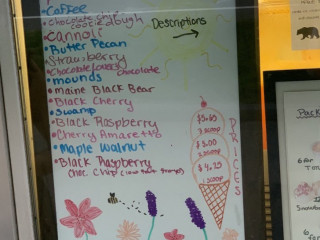 Coffee
Chocolate chip
cookie dough
Cannoli
Butter Pecan
Strawberry
Chocolate/
chocolate
mounds
maine Black Bear
Black Cherry
Swamp
Black Raspberry
Cherry Amaretto
Maple Walnut
Black Raspberry
Choc Chip
Descriptions
3 scoop
$5.00
2 scoop
$4.25
1 scoop
PRICES
Pack